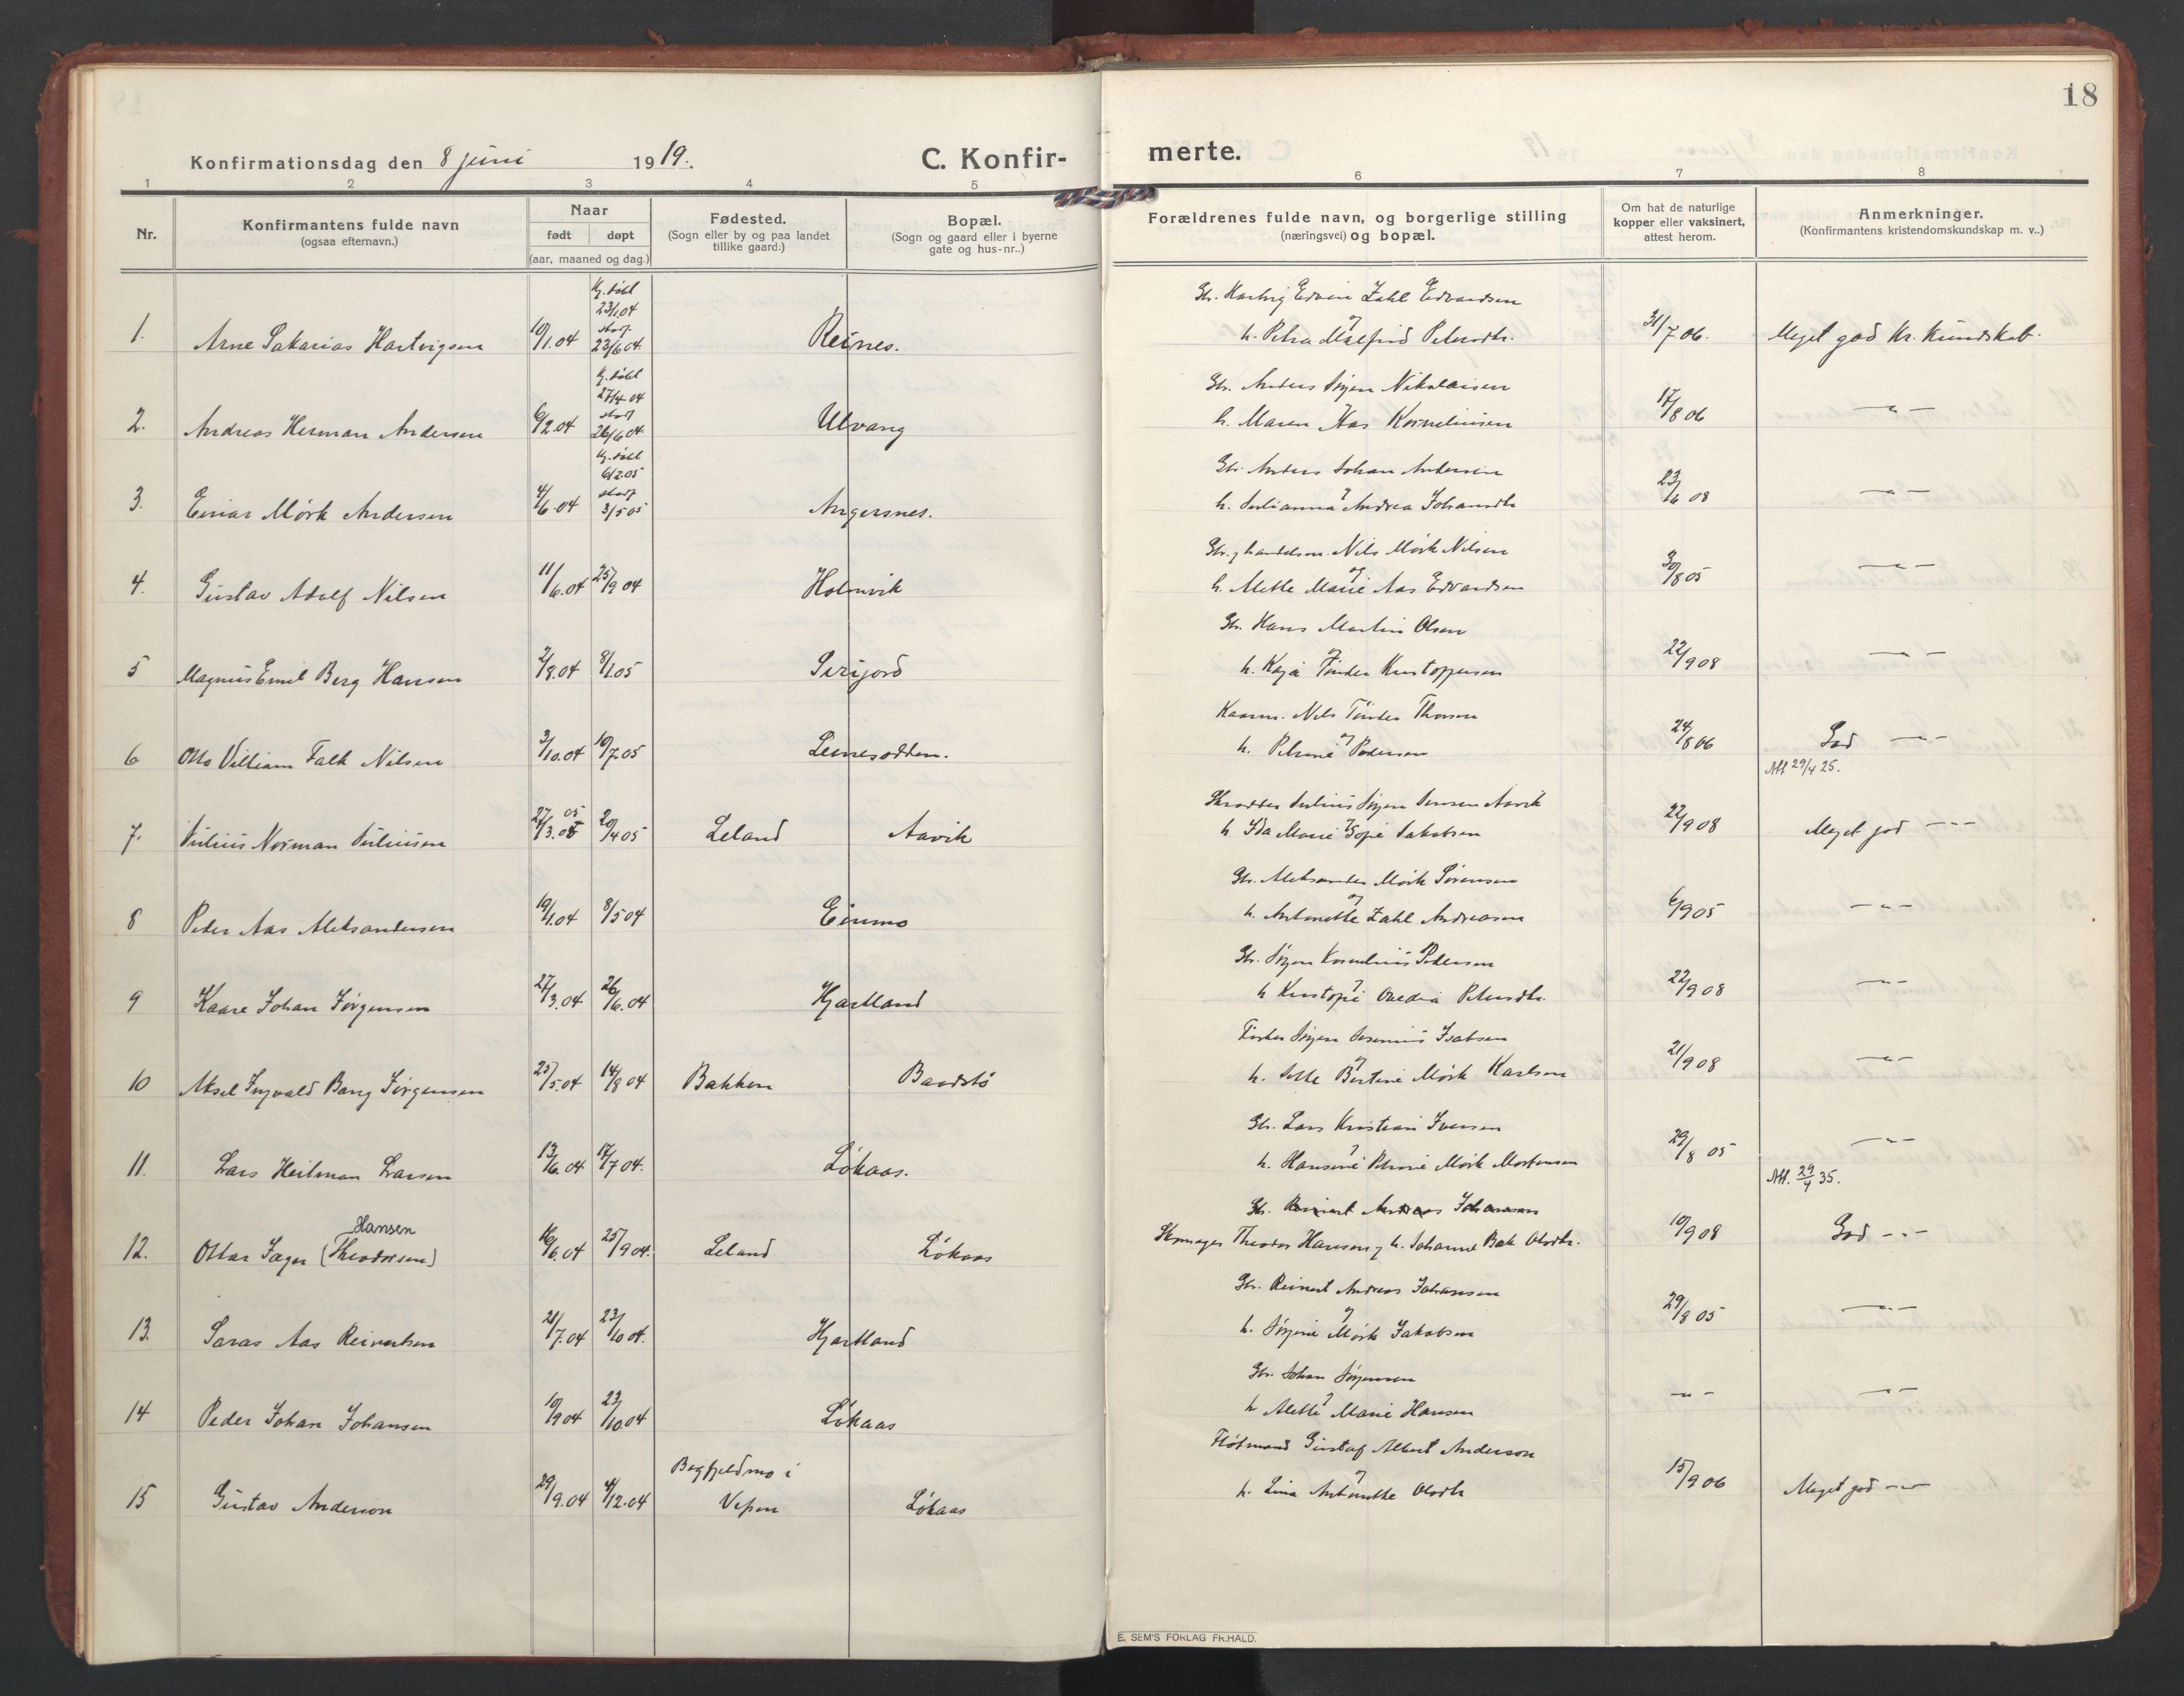 18
Konfirmationsdag den 8 juni 1919.
C. Konfir-
merte.
1 2 3 4 5 6 7 8
Nr.
Konfirmantens fulde navn
(ogsaa efternavn.)
Naar
født døpt
(aar, maaned og dag.)
Fødested.
(Sogn eller by og paa landet
tillike gaard.)
Bopæl.
(Sogn og gaard eller i byerne
gate og hus-nr..)
Forældrenes fulde navn, og borgerlige stilling
(næringsvei) og bopæl.
Om hat de naturlige
kopper eller vaksinert,
attest herom.
Anmerkninger.
(Konfirmantens kristendomskundskap m. v..)
Gbr. Hartvig Edvin Zahl Edvardsen
1. Arne Sakarias Hartvigsen 10/1.04 hj. døbt 23/1.04 stadf. 23/6 04. Reines. og h. Petra Målfrid Petersdtr. 31/7 06. Meget god Kr. Kundskab.
Gbr. Anders Jørgen Nikolaisen
2. Andreas Herman Andersen 6/2.04 hj. døbt 27/4 04 stadf 26/6 04. Ulvang h. Maren Aas Korneliussen 17/8 06 —"—
Gbr. Anders Johan Andersen
3. Einar Mørk Andersen 4/6.04 hj. døbt 6/2 05 stadf 3/5 05 Angersnes. og h. Julianna Andrea Johansdtr 23/6 08 —"—
Gbr. og handelsm. Nils Mørk Nilsen
4. Gustav Adolf Nilsen 11/6.04 25/9 04 Holmvik og h. Mette Marie Aas Edvardsen 30/8 05 —"—
Gbr. Hans Martin Olsen
5 Magnus Emil Berg Hansen 2/8.04 8/1.05 Sørfjord og h. Kaja Tønder Kristoffersen 22/9 08 —"—
Kaarm. Nils Tønder Thorsen
6 Otto Villiam Falk Nilsen 3/10.04 10/7.05 Leinesodden. og h. Petrine Pedersen 24/8 06 God —"—
Att 29/4 25.
Skrædder Julius Jørgen Jensen Aavik
7. Julius Norman Juliussen 27/3.05 05 20/4 05 Leland Aavik og h Ida Marie Sofie Jakobsen 22/9 08 Meget god —"—
Gbr. Aleksander Mørk Sørensen
8 Peder Aas Aleksandersen 19/1.04 8/5 04 Einmo og h. Antonette Zahl Andreasen 6/9 05 —"—
Gbr. Jørgen Kornelius Pedersen
9 Kaare Johan Jørgensen 27/3.04 26/6.04 Hjartland og h Kristofie Ovedia Petersdtr. 22/9 08 —"—
Fisker Jørgen Jesenius Isaksen
10 Aksel Ingvald Bang Jørgensen 25/5.04 14/8 04 Bakken Baadstø og h. Jette Bertine Mørk Karlsen 21/9 08 —"—
Gbr. Lars Kristian Iversen
11. Lars Heitman Larsen 13/6 04 17/7 04. Løkaas. og h. Hansine Petrine Mørk Mortensen 29/8 05 —"—
Att. 29/4 35.
Gbr. Reinert Andreas Johansen
Hansen
12. Ottar Jæger (Theodorsen) 16/6.04 25/9 04. Leland Løkaas Skomager Theodor Hansen og h. Johanna Bak Olsdtr. 10/9 08 God —"—
Gbr. Reinert Andreas Johansen
13. Saras Aas Reinertsen 21/7.04 23/10 04. Hjartland og h. Jørgine Mørk Jakobsen 29/8 05 —"—
Gbr. Johan Jørgensen
14 Peder Johan Johansen 10/9 04 23/10.04 Løkaas og h Mette Marie Hansen —"— —"—
Fløtmand Gustaf Albert Anderson
Bagfjeldmo i
15 Gustav Anderson 29/9.04 4/12.04 Vefsen Løkaas og h. Lina Antonette Olsdtr 15/9 06 Meget god —"—
E. SEM'S FORLAG FR.HALD.